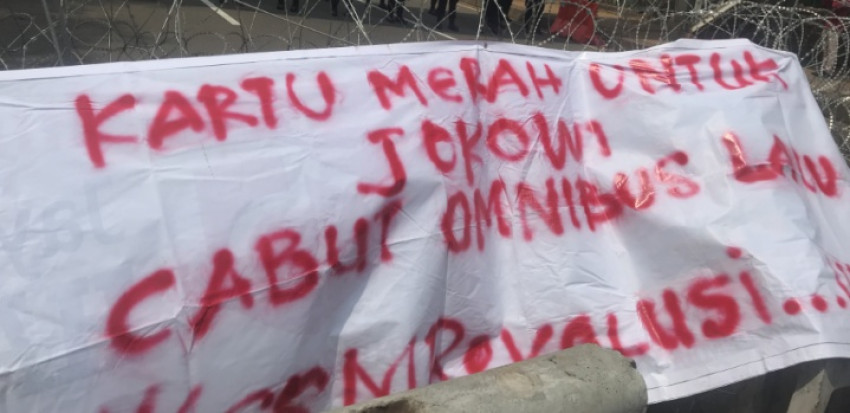 KARTU MERAH UNTUK
JOKOWI
CABUT OMNIBUS LALU